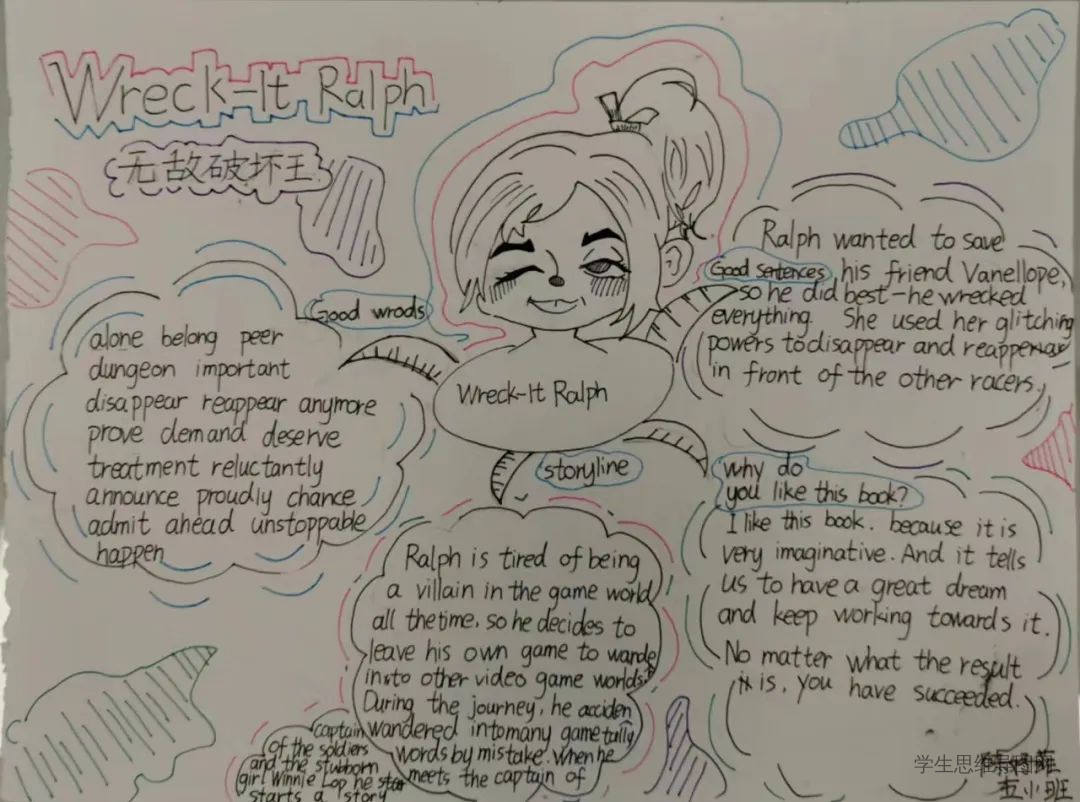 Wreck-It Ralph
无敌破坏王
Good wrods
alone belong peer
dungeon important
disappear reappear anymore
prove demand deserve
treatment reluctantly
announce proudly chance
admit ahead unstoppable
happen
Wreck-It Ralph
Good sentences
Ralph wanted to save
his friend Vanellope,
so he did best-he wrecked
everything. She used her glitching
powers to disappear and reappenar
in front of the other racers,
storyline
Ralph is tired of being
a villain in the game world
all the time, so he decides to
leave his own game to wande
insto other video game worlds.
During the journey, he acciden
tally
wandered into many game
words by mistake. when he
meets the captain of
captain
of the soldiers
and the stubborn
girl Winnie Lop he
starts a story
why do
you like this book?
I like this book. because it is
very imaginative. And it tells
us to have a great dream
and keep working towards it.
No matter what the result
is, you have succeeded.
学生思维
五小班